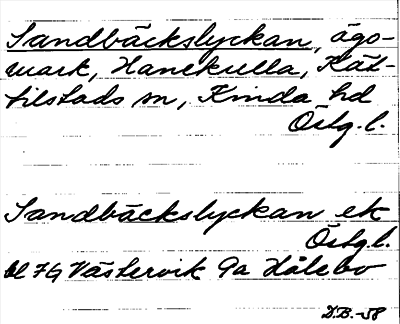 Sandbäckslyckan, ägo-
mark, Hanekulla, Kät-
tilstads sn, Kinda hd
Östg.l.
Sandbäckslyckan ek
Östg.l.
bl 7G Västervik 9a Hålebo
D.B.-58